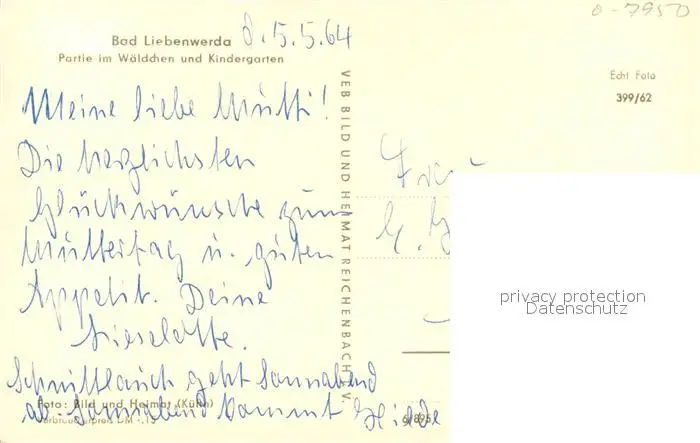 o-7950
Bad Liebenwerda d. 5.5.64
Partie im Wäldchen und Kindergarten
Echt Foto
399/62
Meine liebe Mutti!
Die herzlichsten
Glückwünsche zum
Muttertag u. guten
Appetit. Deine
Lieselotte.
Schnittlauch geht Sonnabend
ab. Sonnabend kommt Hilde
Foto: Bild und Heimat (Kühn)
Verbraucherpreis DM -,15
VEB BILD UND HEIMAT REICHENBACH I. V.
Frau
privacy protection
Datenschutz